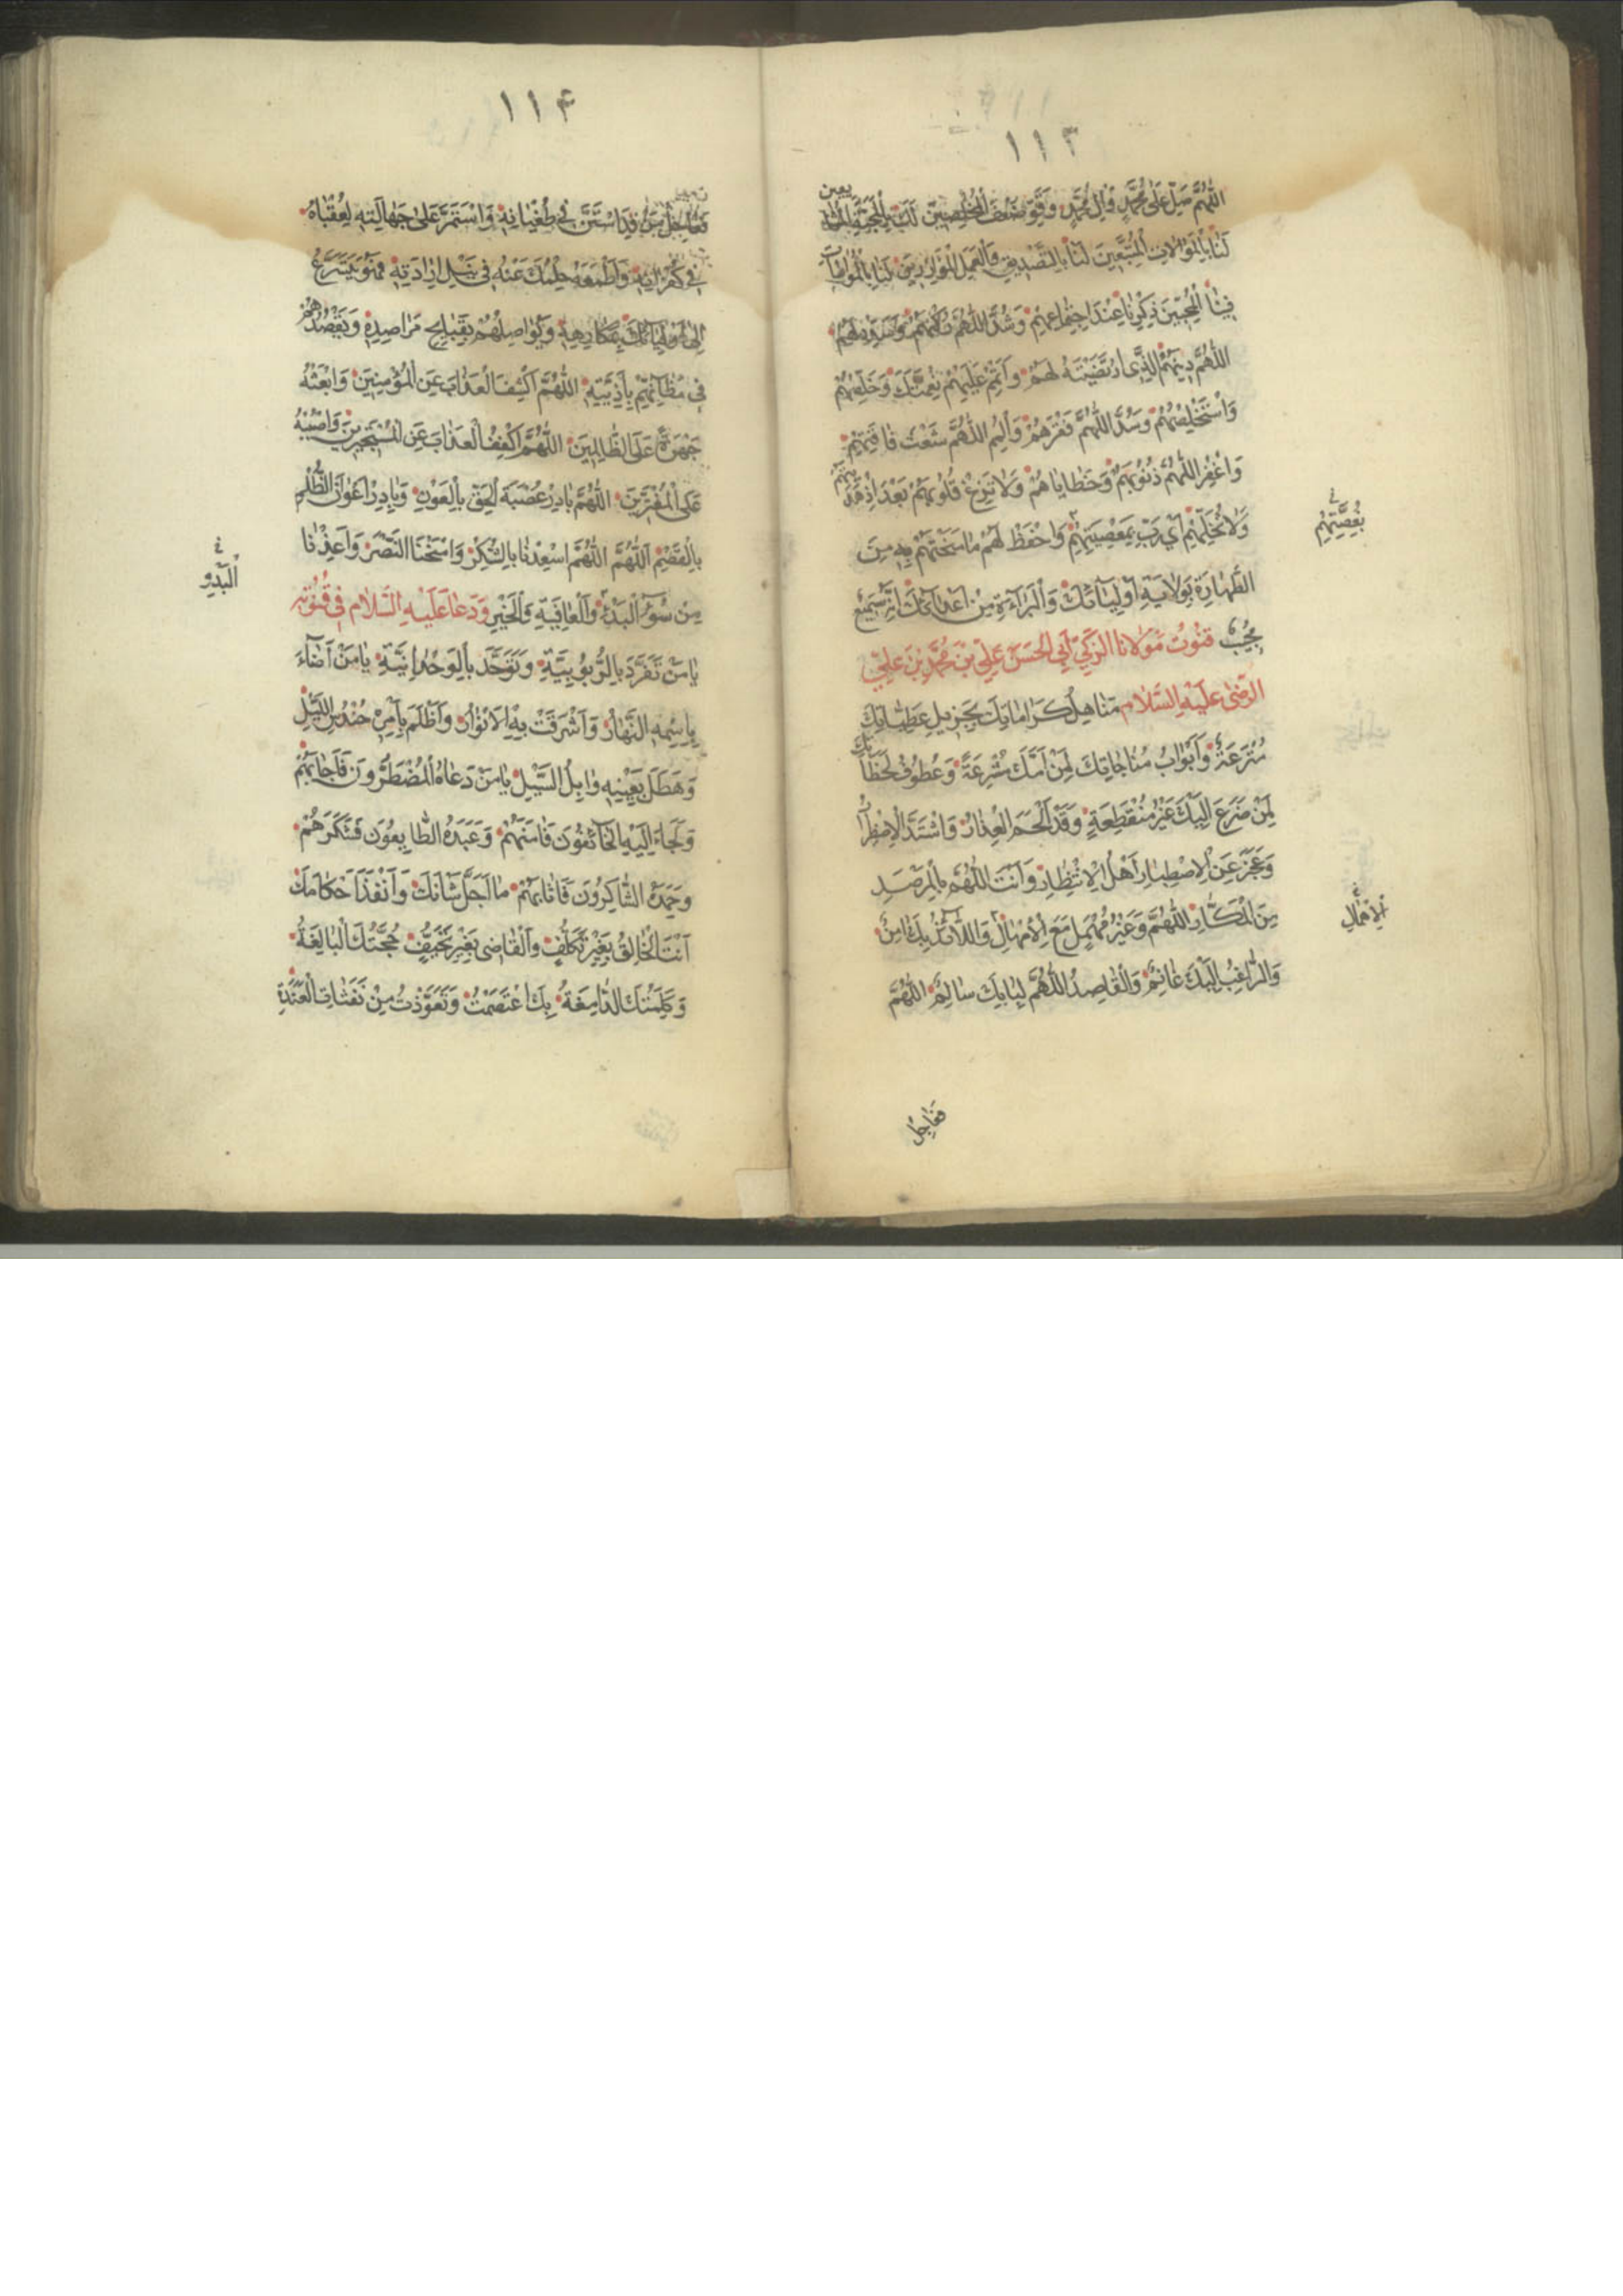 ١١٣
اللّٰهُمَّ صَلِّ عَلٰى مُحَمَّدٍ وَاٰلِ مُحَمَّدٍ وَقَوِّ ضَعْفَ الْمُخْلِصِينَ لَكَ بِالْمَحَبَّةِ الْمُشَايِعِينَ
لَنَا بِالْمُوَالَاتِ الْمُتَّبِعِينَ لَنَا بِالتَّصْدِيقِ وَالْعَمَلِ الْمُوَازِرِينَ لَنَا بِالْمُوَاسَاتِ
فِينَا الْمُحِبِّينَ ذِكْرَنَا عِنْدَ اجْتِمَاعِهِمْ وَشُدَّ اللّٰهُمَّ رُكْنَهُمْ وَسَدِّدْ لَهُمُ
اللّٰهُمَّ دِينَهُمُ الَّذِى ارْتَضَيْتَهُ لَهُمْ وَأَتْمِمْ عَلَيْهِمْ نِعْمَتَكَ وَخَلِّصْهُمْ
وَاسْتَخْلِصْهُمْ وَسُدَّ اللّٰهُمَّ فَقْرَهُمْ وَالْمُمِ اللّٰهُمَّ شَعَثَ فَاقَتِهِمْ
وَاغْفِرِ اللّٰهُمَّ ذُنُوبَهُمْ وَخَطَايَاهُمْ وَلَا تُزِغْ قُلُوبَهُمْ بَعْدَ اِذْ هَدَيْتَهُمْ
وَلَا تُخَلِّهِمْ اَىْ رَبِّ بِمَعْصِيَتِهِمْ وَاحْفَظْ لَهُمْ مَا مَنَحْتَهُمْ بِهِ مِنَ
الطَّهَارَةِ بِوَلَايَةِ اَوْلِيَائِكَ وَالْبَرَاءَةِ مِنْ اَعْدَائِكَ اِنَّكَ سَمِيعٌ
مُجِيبٌ قنُوتُ مَوْلَانَا الزَّكِيِّ اَبِى الْحَسَنِ عَلِىِّ بْنِ مُحَمَّدِ بْنِ عَلِىٍّ
الرِّضٰى عَلَيْهِ السَّلَام مَنَاهِلُ كَرَامَاتِكَ بِجَزِيلِ عَطِيَّاتِكَ
مُتْرَعَةٌ وَاَبْوَابُ مُنَاجَاتِكَ لِمَنْ اَمَّكَ مُشْرَعَةٌ وَعُطُوفُ لَحَظَاتِكَ
لِمَنْ ضَرَعَ اِلَيْكَ غَيْرُ مُنْقَطِعَةٍ وَقَدْ اُلْجِمَ الْحِذَارُ وَاشْتَدَّ الْاِضْطِرَارُ
وَعَجَزَ عَنِ الْاِصْطِبَارِ اَهْلُ الْاِنْتِظَارِ وَاَنْتَ اللّٰهُمَّ بِالْمَرْصَدِ
مِنَ الْمَكَّارِ اللّٰهُمَّ وَغَيْرُ مُهْمِلٍ مَعَ الْاِمْهَالِ وَاللَّائِذُ بِكَ اٰمِنٌ
وَالرَّاغِبُ اِلَيْكَ غَانِمٌ وَالْقَاصِدُ اللّٰهُمَّ لِبَابِكَ سَالِمٌ اللّٰهُمَّ
فَعَاجِلْ
١١٤
فَعَاجِلْ مَنْ قَدِ اسْتَنَّ فِى طُغْيَانِهِ وَاسْتَمَرَّ عَلٰى جَهَالَتِهِ لِعُقْبَاهُ
فِى كُفْرَانِهِ وَاَطْمَعَهُ حِلْمُكَ عَنْهُ فِى نَيْلِ اِرَادَتِهِ فَهُوَ يَتَسَرَّعُ
اِلٰى اَوْلِيَائِكَ بِمَكَارِهِهِ وَيُوَاصِلُهُمْ بِقَبَايِحِ مَرَاصِدِهِ وَيَقْصُدُهُمْ
فِى مَظَانِّهِمْ بِاَذِيَّتِهِ اللّٰهُمَّ اكْشِفِ الْعَذَابَ عَنِ الْمُؤْمِنِينَ وَابْعَثْهُ
جَهْرَةً عَلَى الظَّالِمِينَ اللّٰهُمَّ اكْفُفِ الْعَذَابَ عَنِ الْمُسْتَجِيرِينَ وَاصْبُبْهُ
عَلَى الْمُفْتَرِينَ اللّٰهُمَّ بَادِرْ عُصْبَةَ الْحَقِّ بِالْعَوْنِ وَبَادِرْ اَعْوَانَ الظُّلْمِ
بِالْقَصْمِ اَللّٰهُمَّ اللّٰهُمَّ اسْعِدْنَا بِالشُّكْرِ وَامْنَحْنَا النَّصْرَ وَاَعِذْنَا
مِنْ سُوءِ الْبَدْءِ وَالْعَاقِبَةِ وَالْخَيْرِ وَدَعَا عَلَيْهِ السَّلَام فِى قُنُوتِهِ
يَا مَنْ تَفَرَّدَ بِالرُّبُوبِيَّةِ وَتَوَحَّدَ بِالْوَحْدَانِيَّةِ يَا مَنْ اَضَاءَ
بِاسْمِهِ النَّهَارُ وَاَشْرَقَتْ بِهِ الْاَنْوَارُ وَاَظْلَمَ بِاَمْرِهِ حُنْدُسُ اللَّيْلِ
وَهَطَلَ بِغَيْثِهِ وَابِلُ السَّيْلِ يَا مَنْ دَعَاهُ الْمُضْطَرُّونَ فَاَجَابَهُمْ
وَلَجَاءَ اِلَيْهِ الْخَائِفُونَ فَاٰمَنَهُمْ وَعَبَدَهُ الطَّايِعُونَ فَشَكَرَهُمْ
وَحَمِدَهُ الشَّاكِرُونَ فَاَثَابَهُمْ مَا اَجَلَّ شَانَكَ وَاَنْفَذَ اَحْكَامَكَ
اَنْتَ الْخَالِقُ بِغَيْرِ تَكَلُّفٍ وَالْقَاضِى بِغَيْرِ تَحَيُّفٍ حُجَّتُكَ الْبَالِغَةُ
وَكَلِمَتُكَ الدَّامِغَةُ بِكَ اعْتَصَمْتُ وَتَعَوَّذْتُ مِنْ نَفَثَاتِ الْعَنَدَةِ
الْبَدْوِ